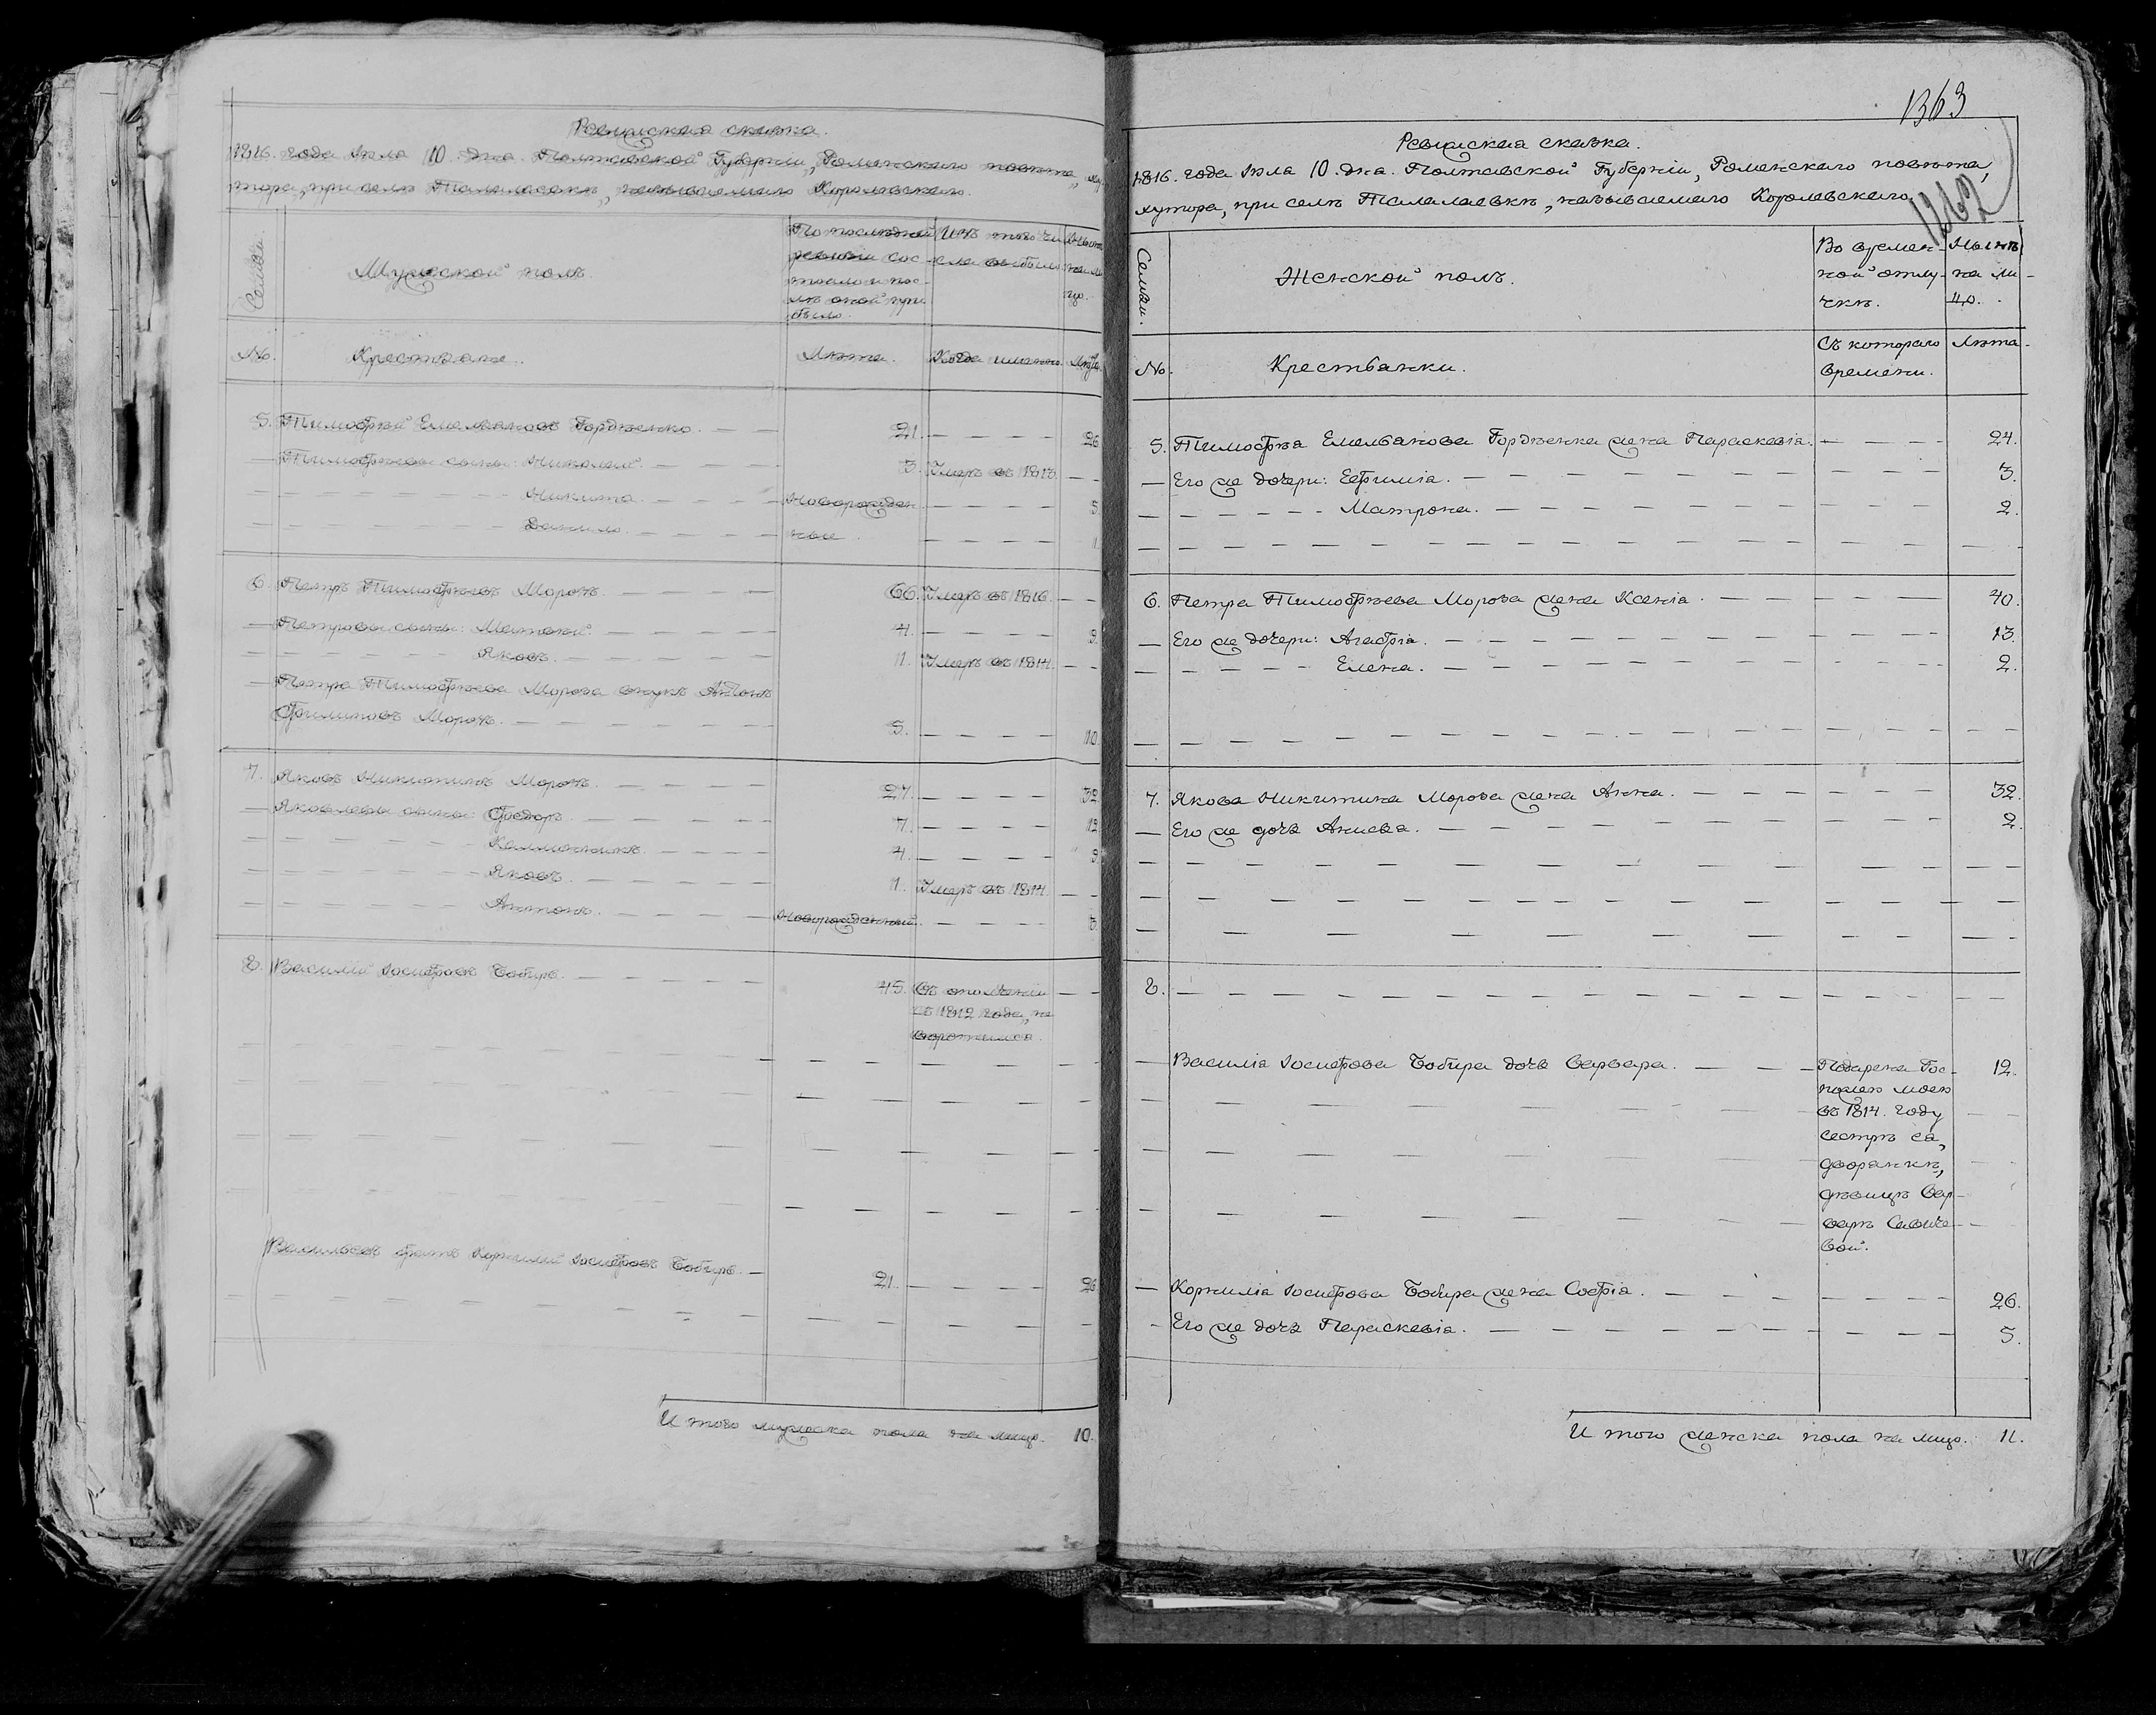 Ревизская сказка.
1816. года Июля 10. дня. Полтавской Губернiи, Роменскаго повѣта, ху-
тора, при селѣ Талалаевкѣ, называемаго Королевскаго.
Семьи.
Мужеской полъ.
По последней
ревизiи сос-
тояло и пос-
лѣ оной при
было.
Изъ того чи
сла выбыло
Нынѣ
на ли
цо.
№.
Крестьяне.
Лѣта.
Когда именно.
Лѣта.
5. Тимофѣй Емельяновъ Гордѣенко. 21. 26
Тимофѣевы сыны: Николай. 3. Умръ въ 1813.
Никита. Новорожден 5
Данило. ные 1
6. Петръ Тимофѣевъ Морозъ. 66. Умръ въ 1816.
Петровы сыны: Матвей. 4. 9.
Яковъ. 11. Умръ въ 1814.
Петра Тимофѣева Мороза внукъ Антонъ
Филиповъ Морозъ. 5. 10.
7. Яковъ Никитинъ Морозъ. 27. 32
Яковлевы сыны: Федоръ. 7. 12
Калинникъ. 4. 9
Яковъ. 1. Умръ въ 1814.
Антонъ. Новорожденный. 3.
8. Василiй Iосифовъ Бобыръ. 45. Въ ополченiи
съ 1812 года, не
воротился.
Васильевъ братъ Корнилiй Iосифовъ Бобыръ. 21. 26
И того мужеска пола на лицо. 10.
1363
1262
Ревизская сказка.
1816. года Июля 10. дня. Полтавской Губернiи, Роменскаго повѣта,
хутора, при селѣ Талалаевкѣ, называемаго Королевскаго.
Семьи.
Женской полъ.
Во времен-
ной отлу-
чкѣ.
Нынѣ
на ли-
цо.
№.
Крестьянки.
Съ котораго
времени.
Лѣта.
5. Тимофѣя Емельянова Гордѣенка жена Параскевiя. 24.
Его же дочери: Евфимiя. 3.
Матрона. 2.
6. Петра Тимофѣева Мороза жена Ксенiя. 40.
Его же дочери: Агафiя. 13.
Елена. 2.
7. Якова Никитина Мороза жена Анна. 32.
Его же дочь Анисья. 2.
8.
Василiя Iосифова Бобыра дочь Варвара. Подарена Гос- 12.
пожею моею
въ 1814. году
сестрѣ ея,
дворянкѣ,
дѣвицѣ Вар-
варѣ Савиче-
вой.
Корнилiя Iосифова Бобыра жена Софiя. 26.
Его же дочь Параскевiя. 5.
И того женска пола на лицо. 11.